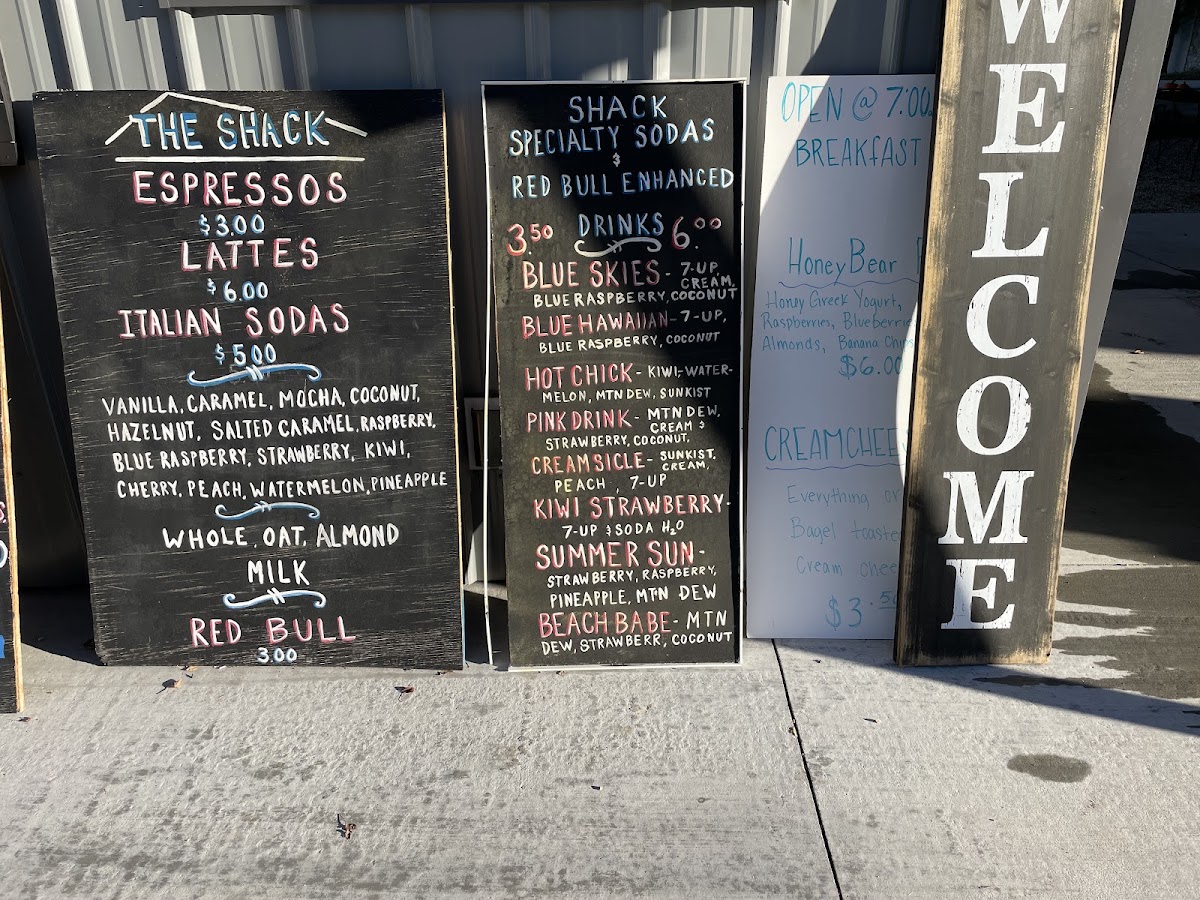 THE SHACK
ESPRESSOS
$3.00
LATTES
$6.00
ITALIAN SODAS
$5.00
VANILLA, CARAMEL, MOCHA, COCONUT,
HAZELNUT, SALTED CARAMEL, RASPBERRY,
BLUE RASPBERRY, STRAWBERRY, KIWI,
CHERRY, PEACH, WATERMELON, PINEAPPLE
WHOLE, OAT, ALMOND
MILK
RED BULL
3.00
SHACK
SPECIALTY SODAS
&
RED BULL ENHANCED
3.50 DRINKS 6.00
BLUE SKIES - 7-UP,
CREAM,
BLUE RASPBERRY, COCONUT
BLUE HAWAIIAN - 7-UP,
BLUE RASPBERRY, COCONUT
HOT CHICK - KIWI, WATER-
MELON, MTN DEW, SUNKIST
PINK DRINK - MTN DEW,
CREAM &
STRAWBERRY, COCONUT,
CREAMSICLE - SUNKIST,
CREAM,
PEACH, 7-UP
KIWI STRAWBERRY -
7-UP & SODA H2O
SUMMER SUN -
STRAWBERRY, RASPBERRY,
PINEAPPLE, MTN DEW
BEACH BABE - MTN
DEW, STRAWBERR, COCONUT
OPEN @ 7:00
BREAKFAST
Honey Bear
Honey Greek Yogurt,
Raspberries, Blueberrie
Almonds, Banana Chips
$6.00
CREAM CHEE
Everything or
Bagel toaste
Cream chee
$3.50
WELCOME